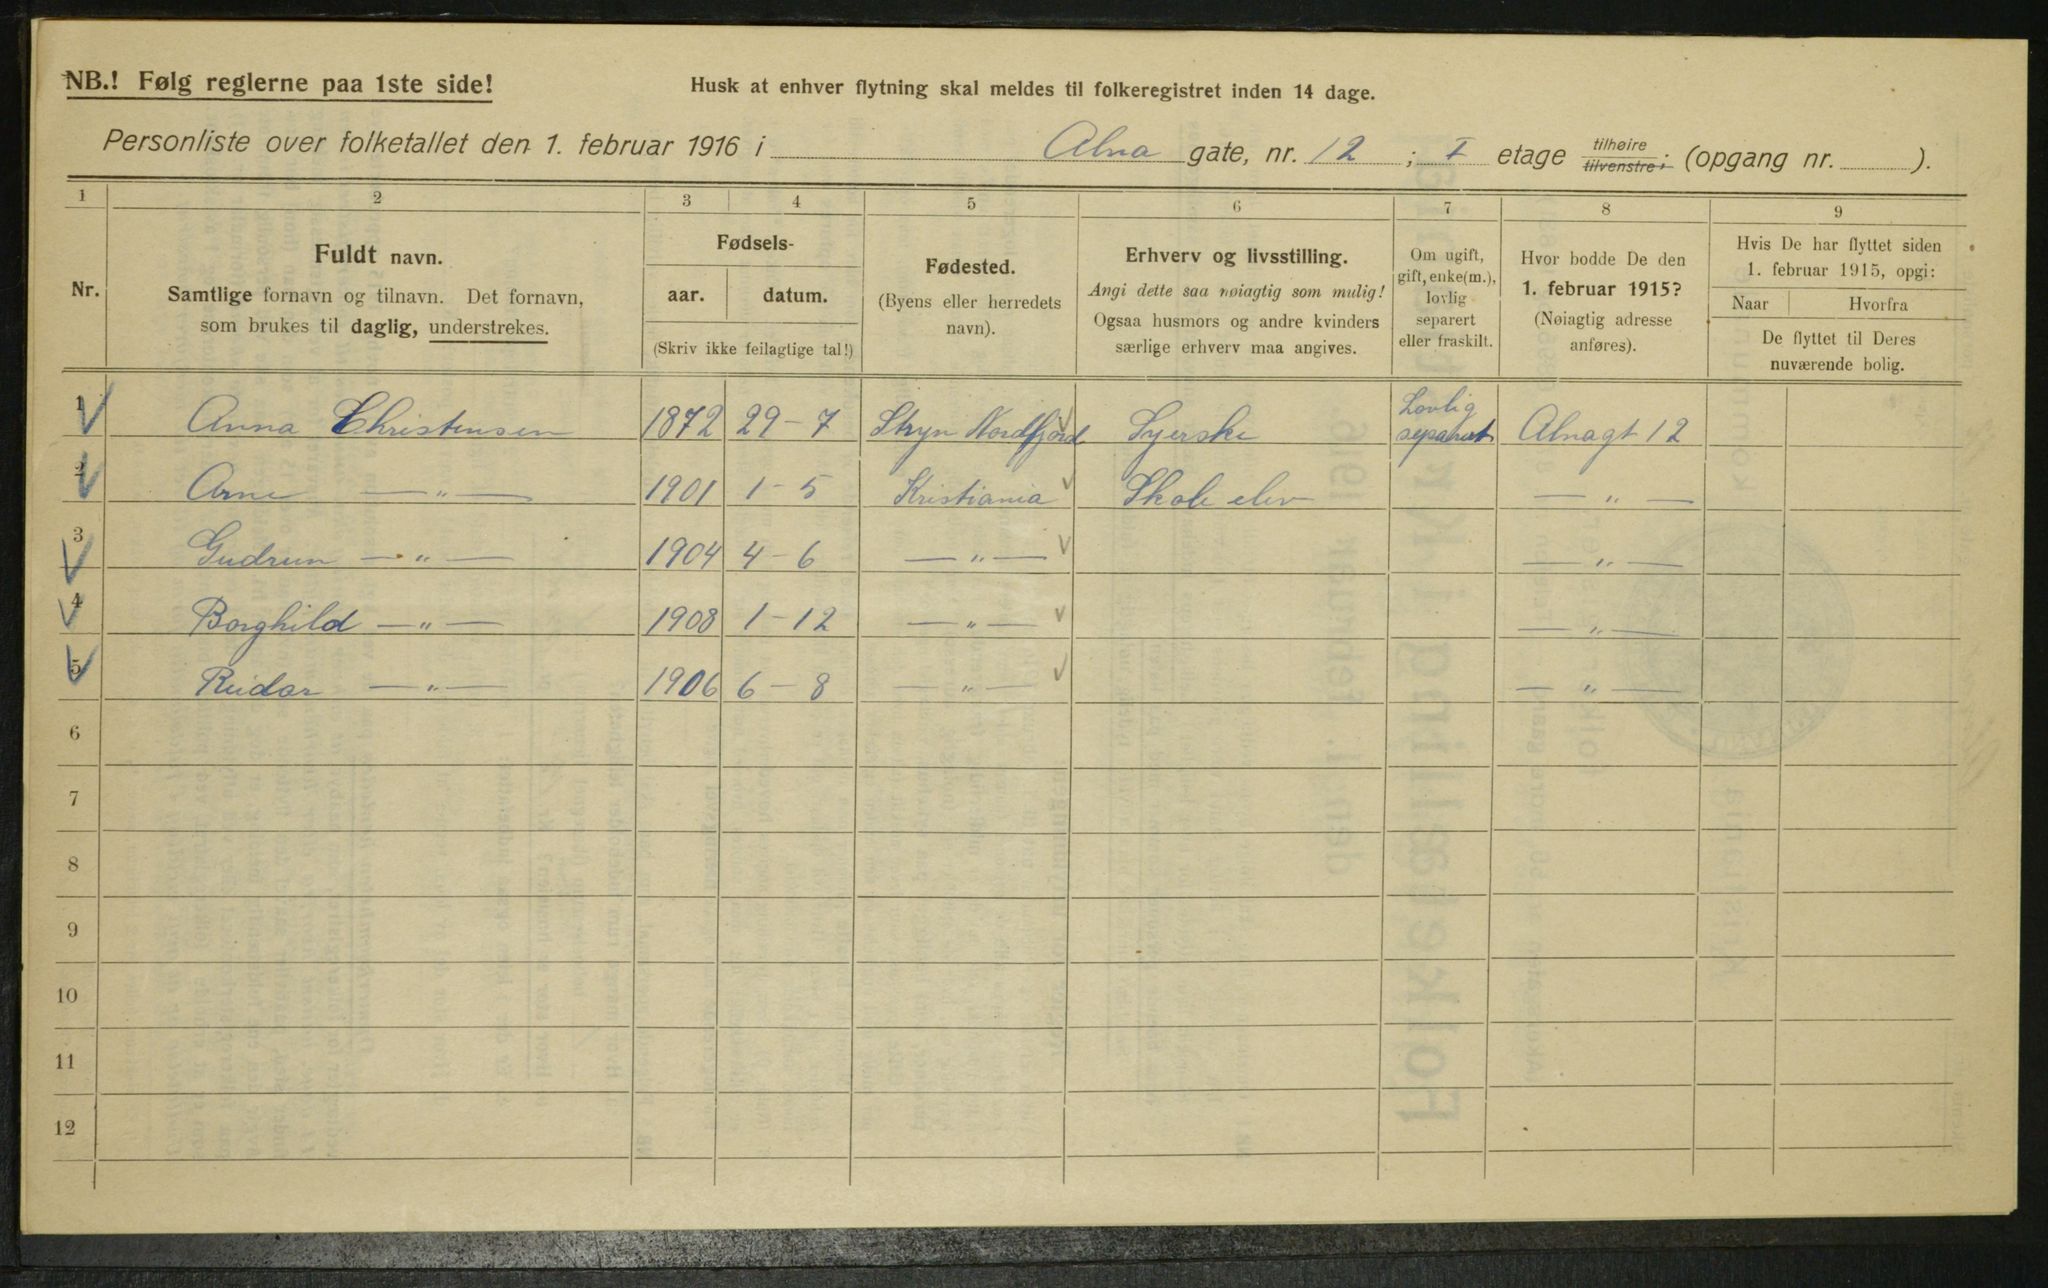 NB.! Følg reglerne paa 1ste side!
Husk at enhver flytning skal meldes til folkeregistret inden 14 dage.
Personliste over folketallet den 1. februar 1916 i Alna gate, nr. 12 ; I etage tilhøire tilvenstre; (opgang nr. ).
1 2 3 4 5 6 7 8 9
Nr.
Fuldt navn.
Samtlige fornavn og tilnavn. Det fornavn,
som brukes til daglig, understrekes.
Fødsels-
aar. datum.
(Skriv ikke feilagtige tal!)
Fødested.
(Byens eller herredets
navn).
Erhverv og livsstilling.
Angi dette saa nøiagtig som mulig!
Ogsaa husmors og andre kvinders
særlige erhverv maa angives.
Om ugift,
gift, enke(m.),
lovlig
separert
eller fraskilt.
Hvor bodde De den
1. februar 1915?
(Nøiagtig adresse
anføres).
Hvis De har flyttet siden
1. februar 1915, opgi:
Naar Hvorfra
De flyttet til Deres
nuværende bolig.
1 Anna Christensen 1872 29-7 Stryn Nordfjord Syerske Lovlig separert Alnagt 12
2 Arne — „ — 1901 1-5 Kristiania Skole elev — „ —
3 Gudrun — „ — 1904 4-6 — „ — — „ —
4 Borghild — „ — 1908 1-12 — „ — — „ —
5 Reidar — „ — 1906 6-8 — „ — — „ —
6
7
8
9
10
11
12